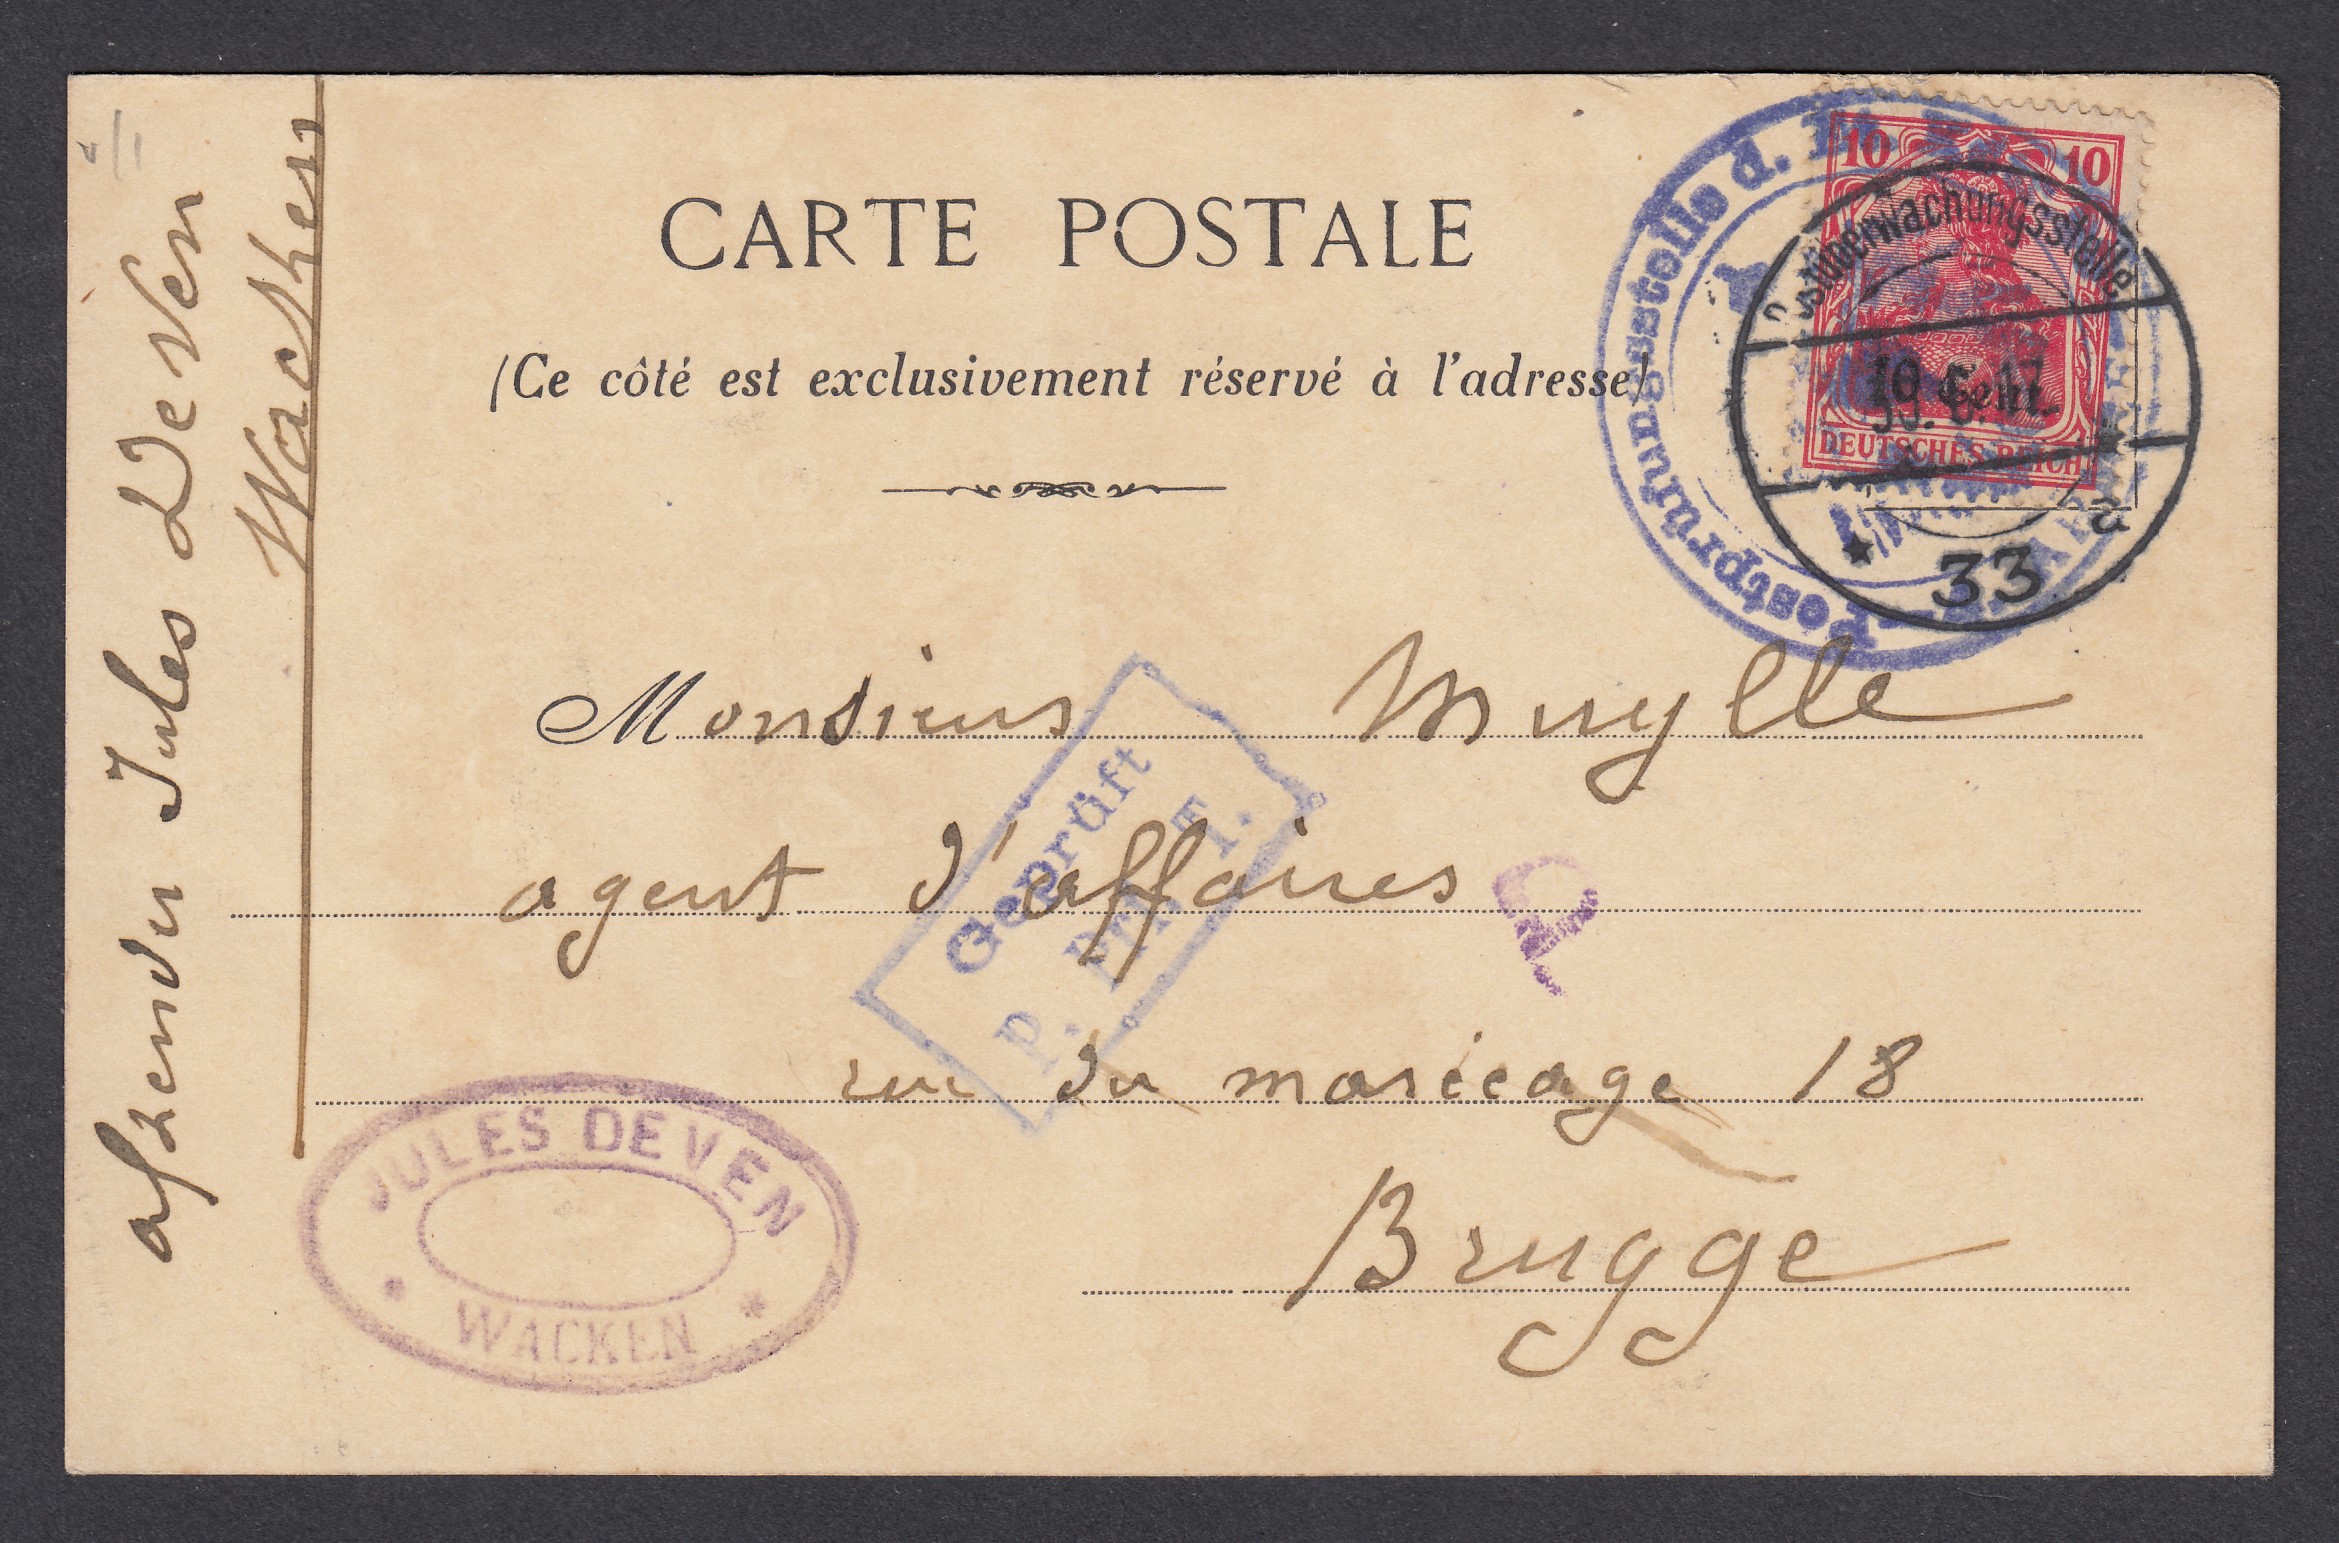 CARTE POSTALE
(Ce côté est exclusivement réservé à l'adresse)
Monsieur Muylle
agent d'affaires
rue du marécage 18
Brugge
afzender Jules De Ven
Wacken
JULES DE VEN
* WACKEN *
Geprüft
P.
10 10
10 Cent.
DEUTSCHES REICH
Postüberwachungsstelle
33
a
Postprüfungsstelle d.